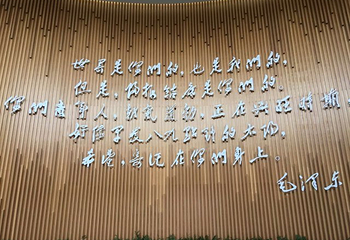 世界是你們的,也是我們的,
但是,归根结底是你們的。
你們青年人,朝氣蓬勃,正在兴旺时期,
好像早晨八九点钟的太阳。
希望,寄托在你們身上。
毛泽东